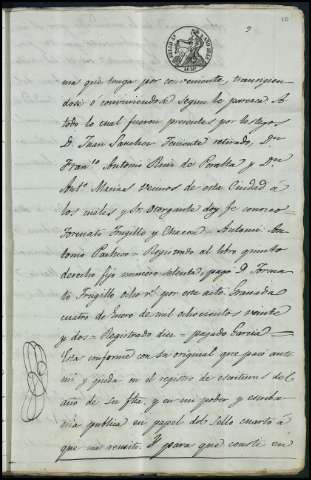 10
9
mas que tenga por conveniente, transigien-
dose ó conviniendose segun le parezca A
todo lo cual fueron presentes por testigos
D. Juan Sanchez Teniente retirado, Dn
Franco Antonio Ruiz de Peralta y Dn
Anto Macias vecinos de esta Ciudad á
los cuales y Sr. Otorgante doy fe conozco =
Torcuato Trugillo y Chacon = Antemi An-
tonio Pacheco = Registrado al libro quinto
derecho fijo numero setenta, pagó D. Torcua
to Trugillo ocho rs. por este acto. Granada
cuatro de Enero de mil ochocientos veinte
y dos = Registrado diez = pagado Garcia =
Esta conforme con su original que pasó ante
mi y queda en el registro de escrituras del
año de su fha. y en mi poder y escriba
nia publica en papel del Sello cuarto á
que me remito. Y para que conste en